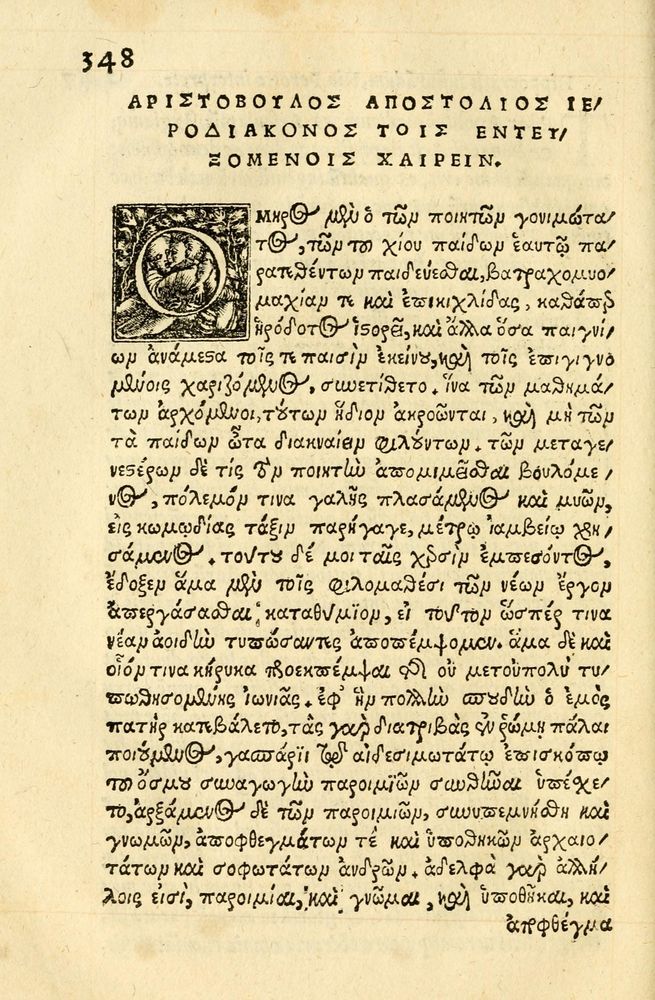 348
ΑΡΙΣΤΟΒΟΥΛΟΣ ΑΠΟΣΤΟΛΙΟΣ ΙΕ/
ΡΟΔΙΑΚΟΝΟΣ ΤΟΙΣ ΕΝΤΕΥ/
ΞΟΜΕΝΟΙΣ ΧΑΙΡΕΙΝ.
ΟΜΗΡος μὲν ὁ τῶν ποιητῶν γονιμώτα/
τος, τῶν τοῦ χίου παίδων ἑαυτῷ πα/
ρατεθέντων παιδεύεσθαι, βατραχομυο/
μαχίαν τε καὶ ἐπικιχλίδας, καθάπερ
ἡρόδοτος ἱστορεῖ, καὶ ἄλλα ὅσα παιγνί/
ων ἀνάμεστα τοῖς τε παισὶν ἐκείνου, καὶ τοῖς ἐπιγιγνο
μένοις χαριζόμενος, συνετίθετο. ἵνα τῶν μαθημά/
των ἀρχόμενοι, τούτων ἥδιον ἀκροῶνται, καὶ μὴ τῶν
τὰ παίδων ὦτα διακναίειν φιλούντων. τῶν μεταγε/
νεστέρων δέ τις τὸν ποιητὴν ἀπομιμεῖσθαι βουλόμε/
νος, πόλεμόν τινα γαλῆς πλασάμενος καὶ μυῶν,
εἰς κωμῳδίας τάξιν παρήγαγε, μέτρῳ ἰαμβείῳ χρη/
σάμενος. τούτου δέ μοι ταῖς χερσὶν ἐμπεσόντος,
ἔδοξεν ἅμα μὲν τοῖς φιλομαθέσι τῶν νέων ἔργον
ἀπεργάσασθαι καταθύμιον, εἰ τοῦτον ὥσπέρ τινα
νέαν ἀοιδὴν τυπώσαντες ἀποπέμψομεν. ἅμα δὲ καὶ
οἷόν τινα κήρυκα προεκπέμψαι τῆς οὐ μετοὐπολὺ τυ/
πωθησομένης ἰωνιᾶς. ἐφ' ἣν πολλὴν σπουδὴν ὁ ἐμὸς
πατὴρ κατεβάλετο, τὰς γὰρ διατριβὰς ἐν ῥώμῃ πάλαι
ποιούμενος, γασπάρϊ τῷ αἰδεσιμωτάτῳ ἐπισκόπῳ
τοῦ ὄσμου συναγωγὴν παροιμϊῶν συνθεῖναι ὑπέσχε/
το, ἀρξάμενος δὲ τῶν παροιμιῶν, συνυπεμνήσθη καὶ
γνωμῶν, ἀποφθεγμάτων τέ καὶ ὑποθηκῶν ἀρχαιο/
τάτων καὶ σοφωτάτων ἀνδρῶν. ἀδελφὰ γὰρ ἀλλή/
λοις εἰσὶ, παροιμίαι, καὶ γνῶμαι, καὶ ὑποθῆκαι, καὶ
ἀποφθέγμα